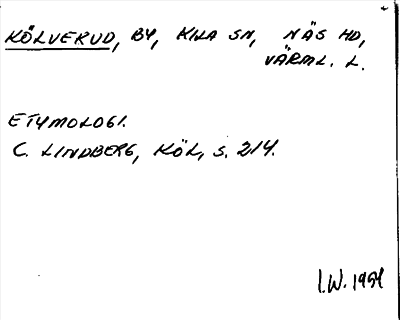 KÖLVERUD, BY, KILA SN, NÄS HD,
VÄRML. L.
ETYMOLOGI.
C. LINDBERG, KÖL, S. 214.
I.W. 1954